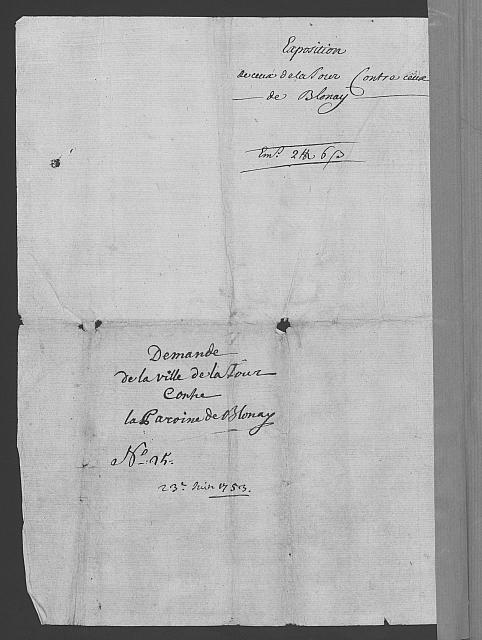 Exposition
de ceux de la Tour Contre ceux
de Blonay
Em.t 2 ℔ 6 ß
Demande
de la ville de la Tour
Contre
la Paroisse de Blonay
N.o 25.
23.e Juin 1753.